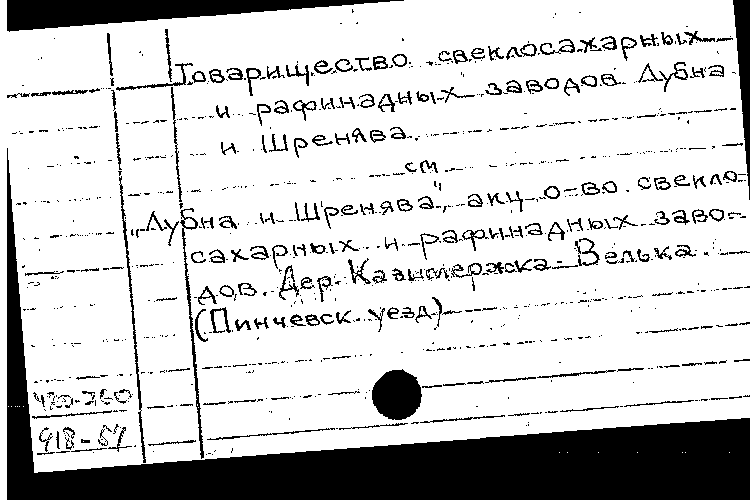 Товарищество свеклосахарных
и рафинадных заводов Лубна
и Шренява.
см
„Лубна и Шренява", акц. о-во свекло-
сахарных и рафинадных заво-
дов. Дер. Казимержска-Велька.
(Пинчевск. уезд)
918-57